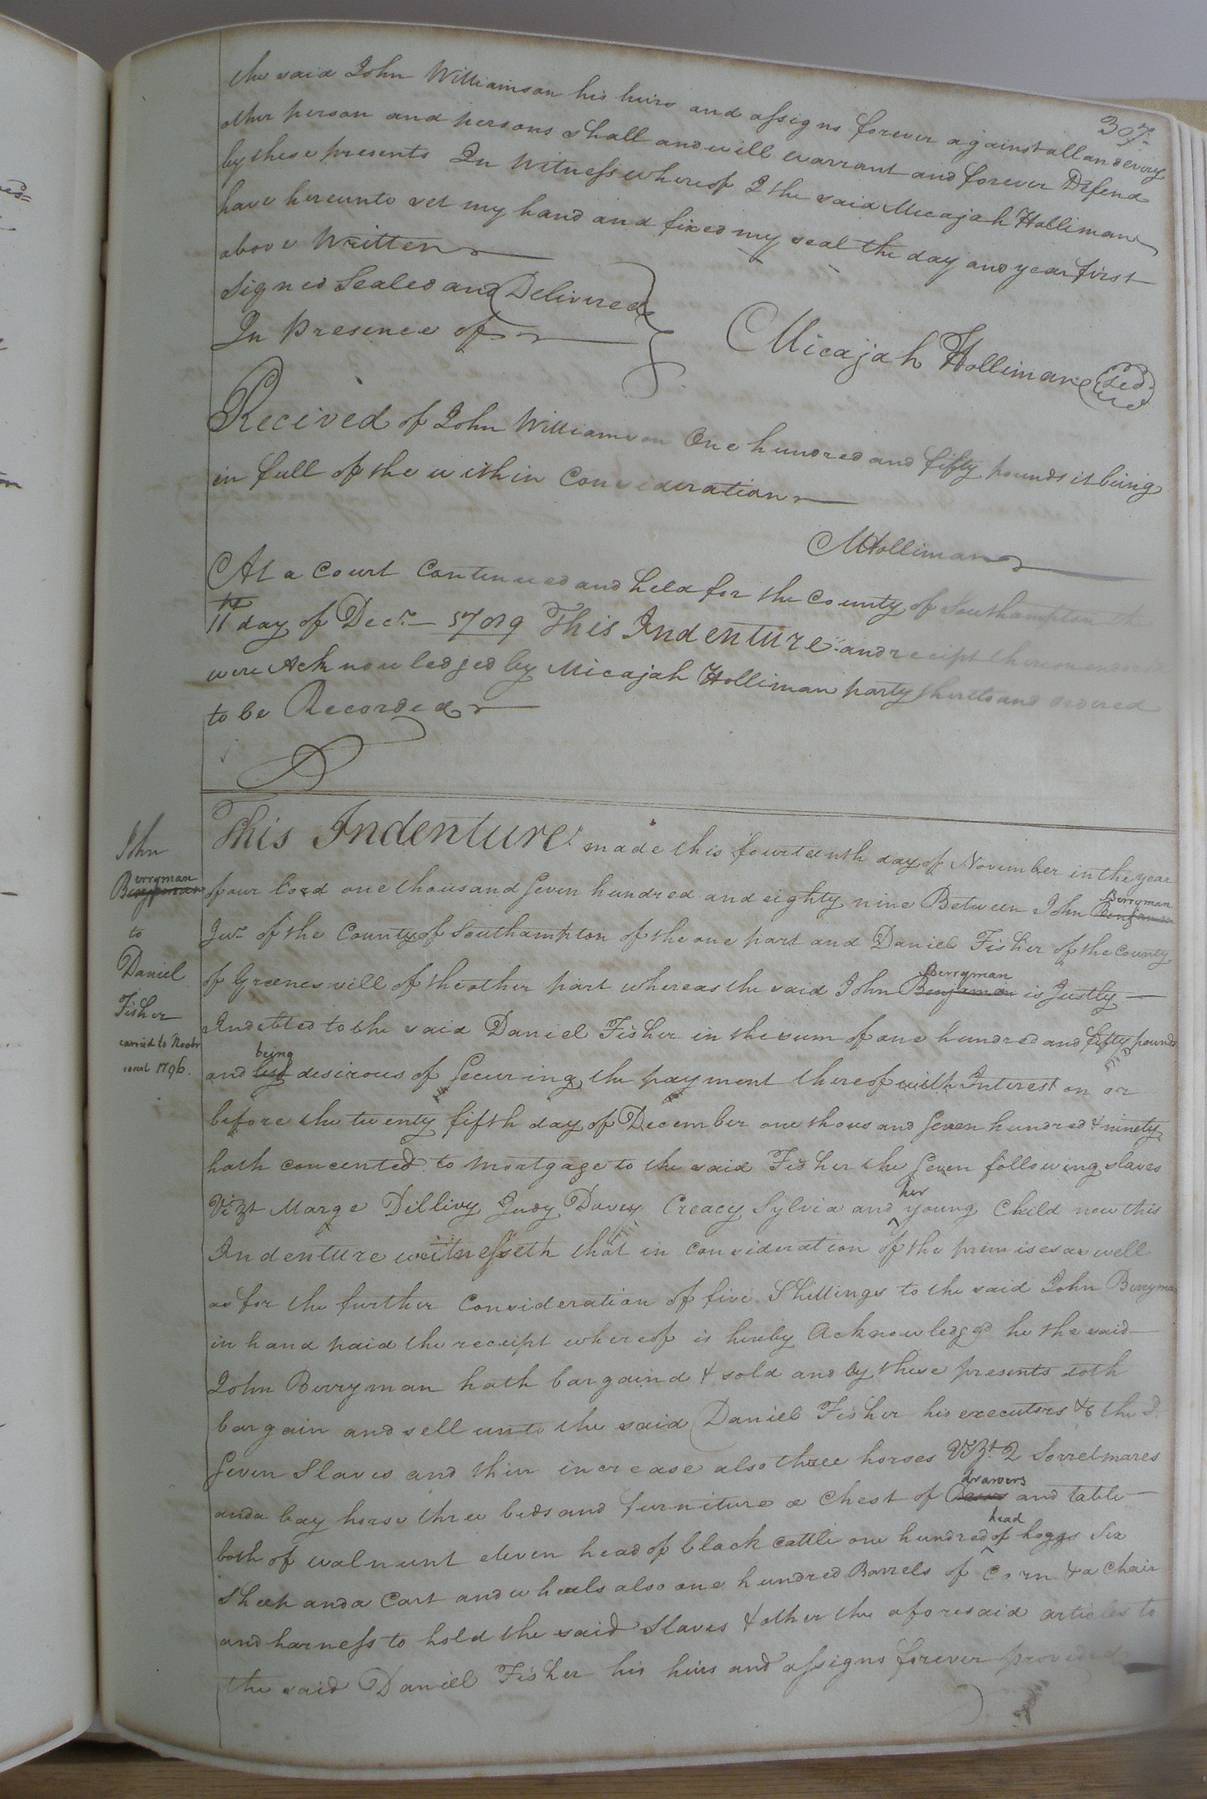 307
the said John Williamson his heirs and assigns forever against all and every
other person and persons shall and will warrant and forever Defend
by these presents In Witness whereof I the said Micajah Holliman
have hereunto set my hand and fixed my seal the day and year first
above Written
Signed Sealed and Delivered
In Presence of
Micajah Holliman Sed.
Recived of John Williamson One hundred and fifty pounds it being
in full of the within Consideration
M Holliman
At a Court Continued and held for the County of Southampton the
11th day of Decr. 1789 This Indenture and receipt thereon endorsed
were Acknowledged by Micajah Holliman party thereto and ordered
to be Recorded
John
Berryman
to
Daniel
Fisher
carried to Novbr
court 1796.
This Indenture made this fourteenth day of November in the year
of our lord one thousand seven hundred and eighty nine Between John Berryman
Junr. of the County of Southampton of the one part and Daniel Fisher of the County
of Greenesvill of the other part whereas the said John Berryman is Justly
Indebted to the said Daniel Fisher in the sum of one hundred and fifty pounds
and being desirous of securing the payment thereof with Interest on or
before the twenty fifth day of December one thousand seven hundred & ninety
hath concented to Mortgage to the said Fisher the seven following slaves
Vizt Marge Dillivy Judy Davey Creacy Sylvia and her young Child now this
Indenture witnesseth that in consideration of the premises as well
as for the further Consideration of five Shillings to the said John Berryman
in hand paid the receipt whereof is hereby Acknowledged he the said
John Berryman hath bargaind & sold and by these presents doth
bargain and sell unto the said Daniel Fisher his executors &c the sd.
seven Slaves and their increase also three horses Vizt. 2 Sorrel mares
and a bay horse three beds and furniture a Chest of drawers and table
both of walnunt eleven head of black cattle one hundred head of hoggs Six
Sheep and a Cart and wheels also one hundred Barrels of Corn & a Chair
and harness to hold the said Slaves & other the aforesaid articles to
the said Daniel Fisher his heirs and assigns forever provided